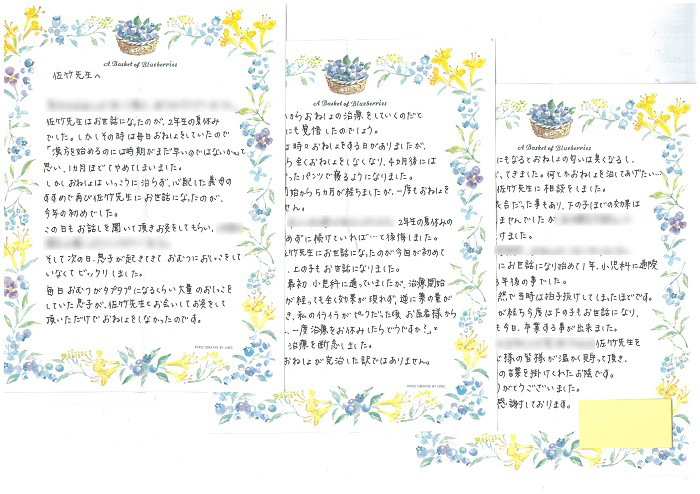 A Basket of Blueberries
佐竹先生へ
佐竹先生はお世話になったのが、2年生の夏休み
でした。しかしその時は毎日おねしょをしていたので
「漢方を始めるのには時期がまだ早いのではないか」と
思い、1カ月ほどでやめてしまいました。
しかしおねしょはいっこうに治らず、心配した義母の
すすめで再び佐竹先生にお世話になったのが、
今年の初めでした。
この日もお話しを聞いて頂きお灸をしてもらい、
そして次の日、息子が起きてきて おむつにおしっこをして
いなくて ビックリしました。
毎日おむつがタプタプになるくらい大量のおしっこを
していた息子が、佐竹先生とお会いしてお灸をして
頂いただけでおねしょをしなかったのです。
A Basket of Blueberries
からおねしょの治療をしていくのだと
にも覚悟したのでしょう。
は時々おねしょをする日がありましたが、
ら全くおねしょをしなくなり、4カ月後には
ったパンツで寝るようになりました。
始から5カ月が経ちましたが、一度もおねしょを
せん。
2年生の夏休みの
めずに続けていれば…と後悔しました。
竹先生にお世話になったのが今回が初めて
、上の子もお世話になりました。
最初 小児科に通っていましたが、治療開始
が経っても全く効果が現れず、逆に薬の量が
き、私のイライラがピークだった頃 お医者様から
一度治療をお休みしたらどうですか？」と
治療を断念しました。
おねしょが完治した訳ではありません。
A Basket of Blueberries
にもなるとおねしょの匂いは臭くなるし、
、てきました。何とかおねしょを治してあげたい…
佐竹先生に相談をしました。
もあり、下の子ほどの効果は
ませんでしたが
けました。
にお世話になり始めて1年、小児科に通院
年後の事でした。
然で当時は拍子抜けしてしまったほどです。
が経ち今度は下の子もお世話になり、
も今日、卒業する事が出来ました。
佐竹先生を
様の皆様が温かく見守って頂き、
の言葉を掛けてくれたお陰です。
りがとうございました。
感謝しております。